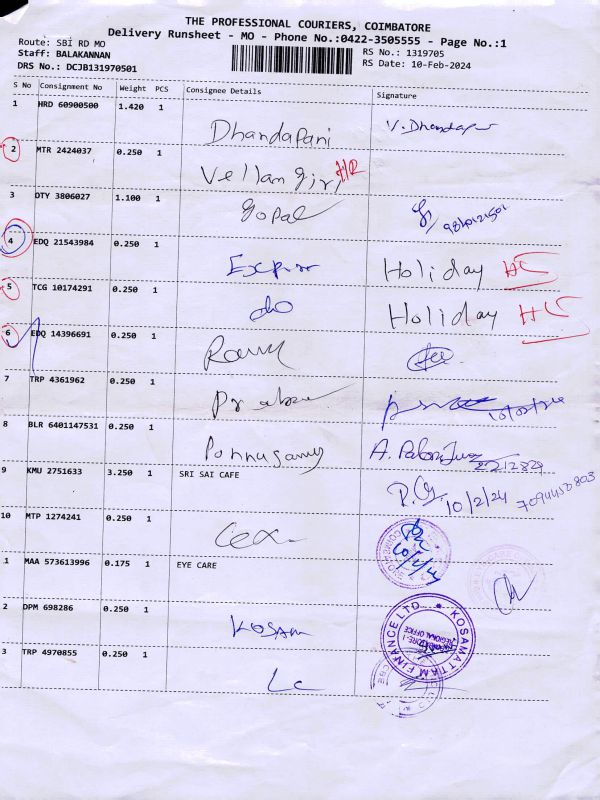 THE PROFESSIONAL COURIERS, COIMBATORE
Delivery Runsheet - MO - Phone No.:0422-3505555 - Page No.:1
Route: SBI RD MO
Staff: BALAKANNAN
DRS No.: DCJB131970501
RS No.: 1319705
RS Date: 10-Feb-2024
S No Consignment No Weight PCS Consignee Details Signature
1 HRD 60900500 1.420 1
Dhandapani V. Dhandapani
2 MTR 2424037 0.250 1
Vellamgiri
3 DTY 3806027 1.100 1
Gopal
4 EDQ 21543984 0.250 1
Holiday
5 TCG 10174291 0.250 1
do Holiday
6 EDQ 14396691 0.250 1
7 TRP 4361962 0.250 1
8 BLR 6401147531 0.250 1
Ponnusamy
9 KMU 2751633 3.250 1 SRI SAI CAFE
10/2/24 7094450803
10 MTP 1274241 0.250 1
1 MAA 573613996 0.175 1 EYE CARE
2 DPM 698286 0.250 1
Kosam
KOSAMATTAM FINANCE LTD.
REGIONAL OFFICE
3 TRP 4970855 0.250 1